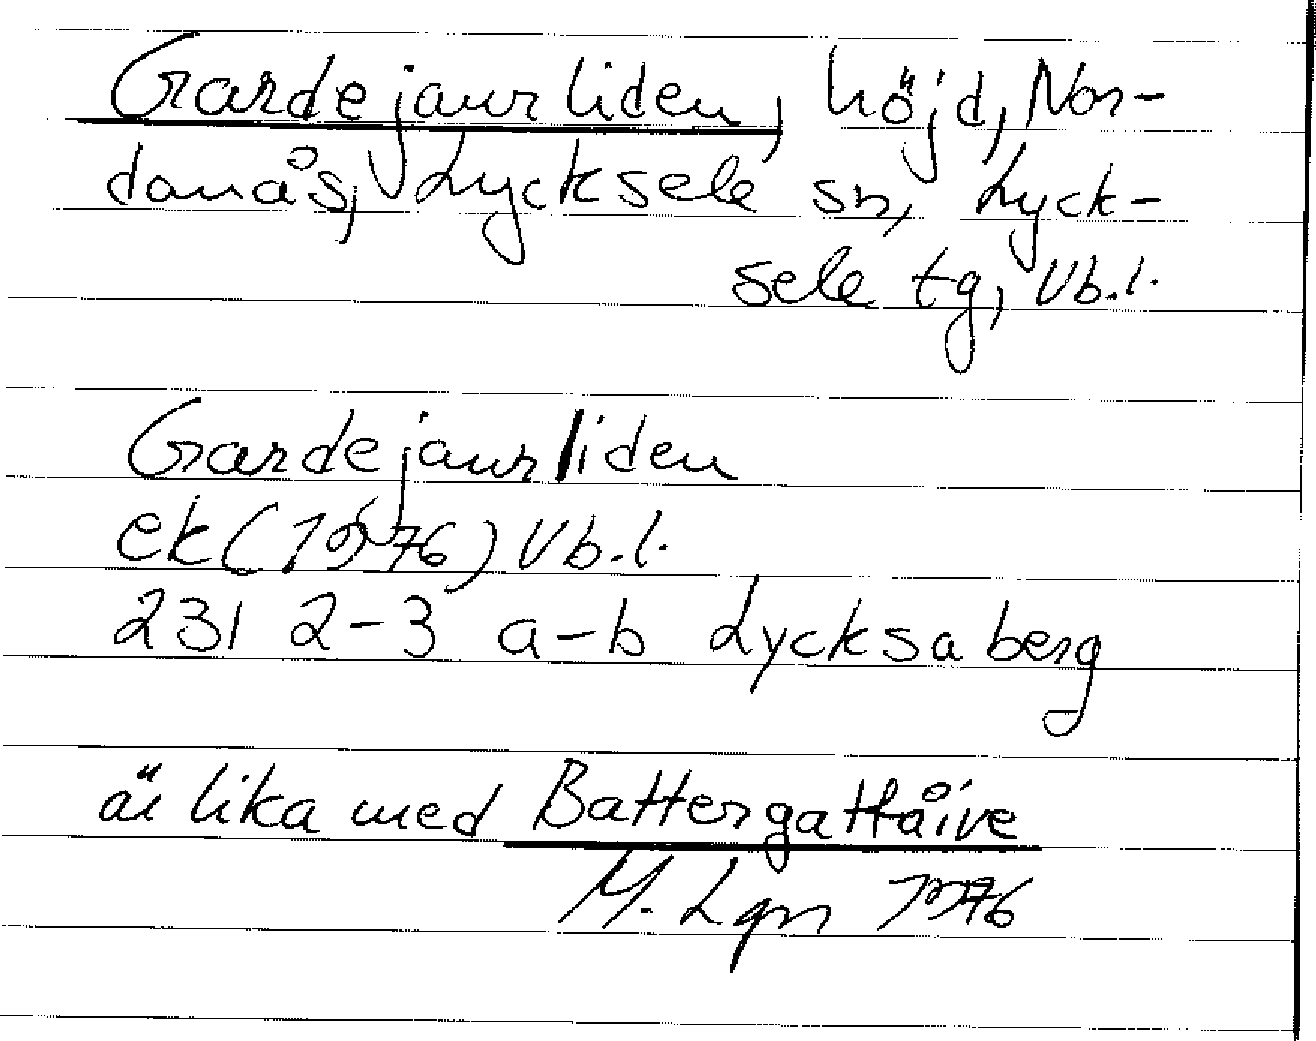 Gardejaurliden, höjd, Nor-
danås, Lycksele sn, Lyck-
sele tg, Vb.l.
Gardejaurliden
ek (1976) Vb.l.
231 2-3 a-b Lycksaberg
är lika med Battergattåive
M. Lgn 1976